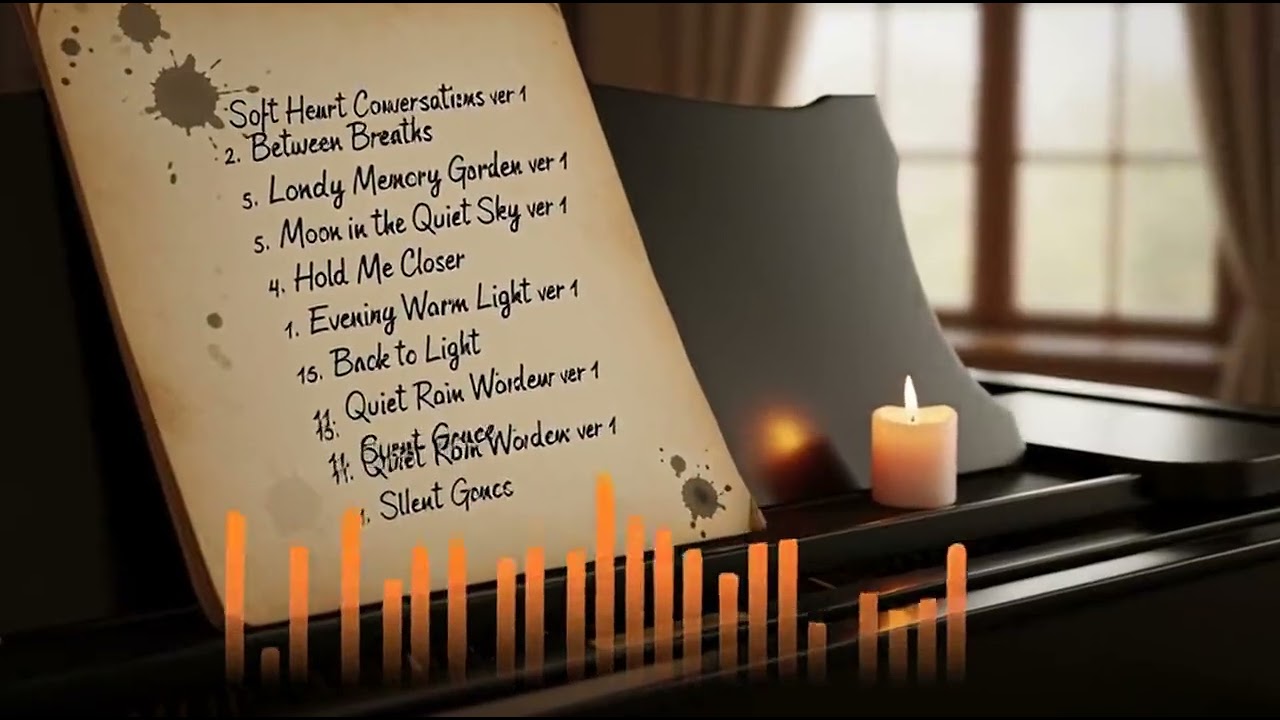 Soft Heurt Conversations ver 1
2. Between Breaths
5. Londy Memory Gorden ver 1
5. Moon in the Quiet Sky ver 1
4. Hold Me Closer
1. Evening Warm Light ver 1
15. Back to Light
11. Quiet Rain Wordeur ver 1
15.
11. Quiet Rom Worden ver 1
1. Sllent Goncc